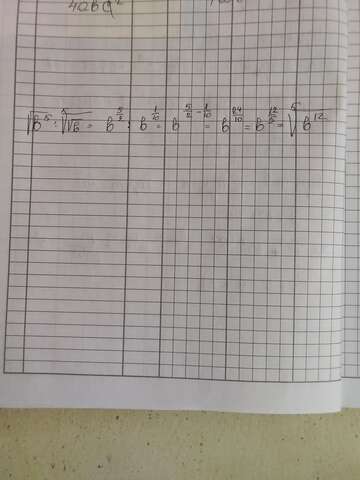 40bc²
√b⁵ : ⁵√√b = b^(5/2) : b^(1/10) = b^(5/2 - 1/10) = b^(24/10) = b^(12/5) = ⁵√b¹²